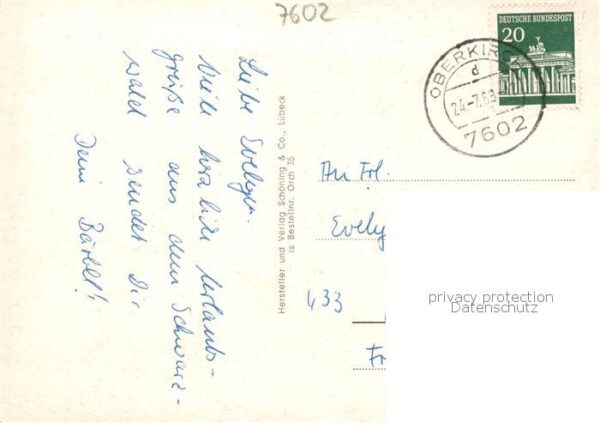 7602
Liebe Evelyn.
Viele herzliche Urlaubs-
grüße aus dem Schwarz-
wald sendet Dir
Deine Bärbel!
Hersteller und Verlag Schöning & Co., Lübeck
is Bestellnr. Orch 35
DEUTSCHE BUNDESPOST
20
OBERKIRCH
d
24.-7.68
7602
An Frl.
Evely
433
Fr
privacy protection
Datenschutz